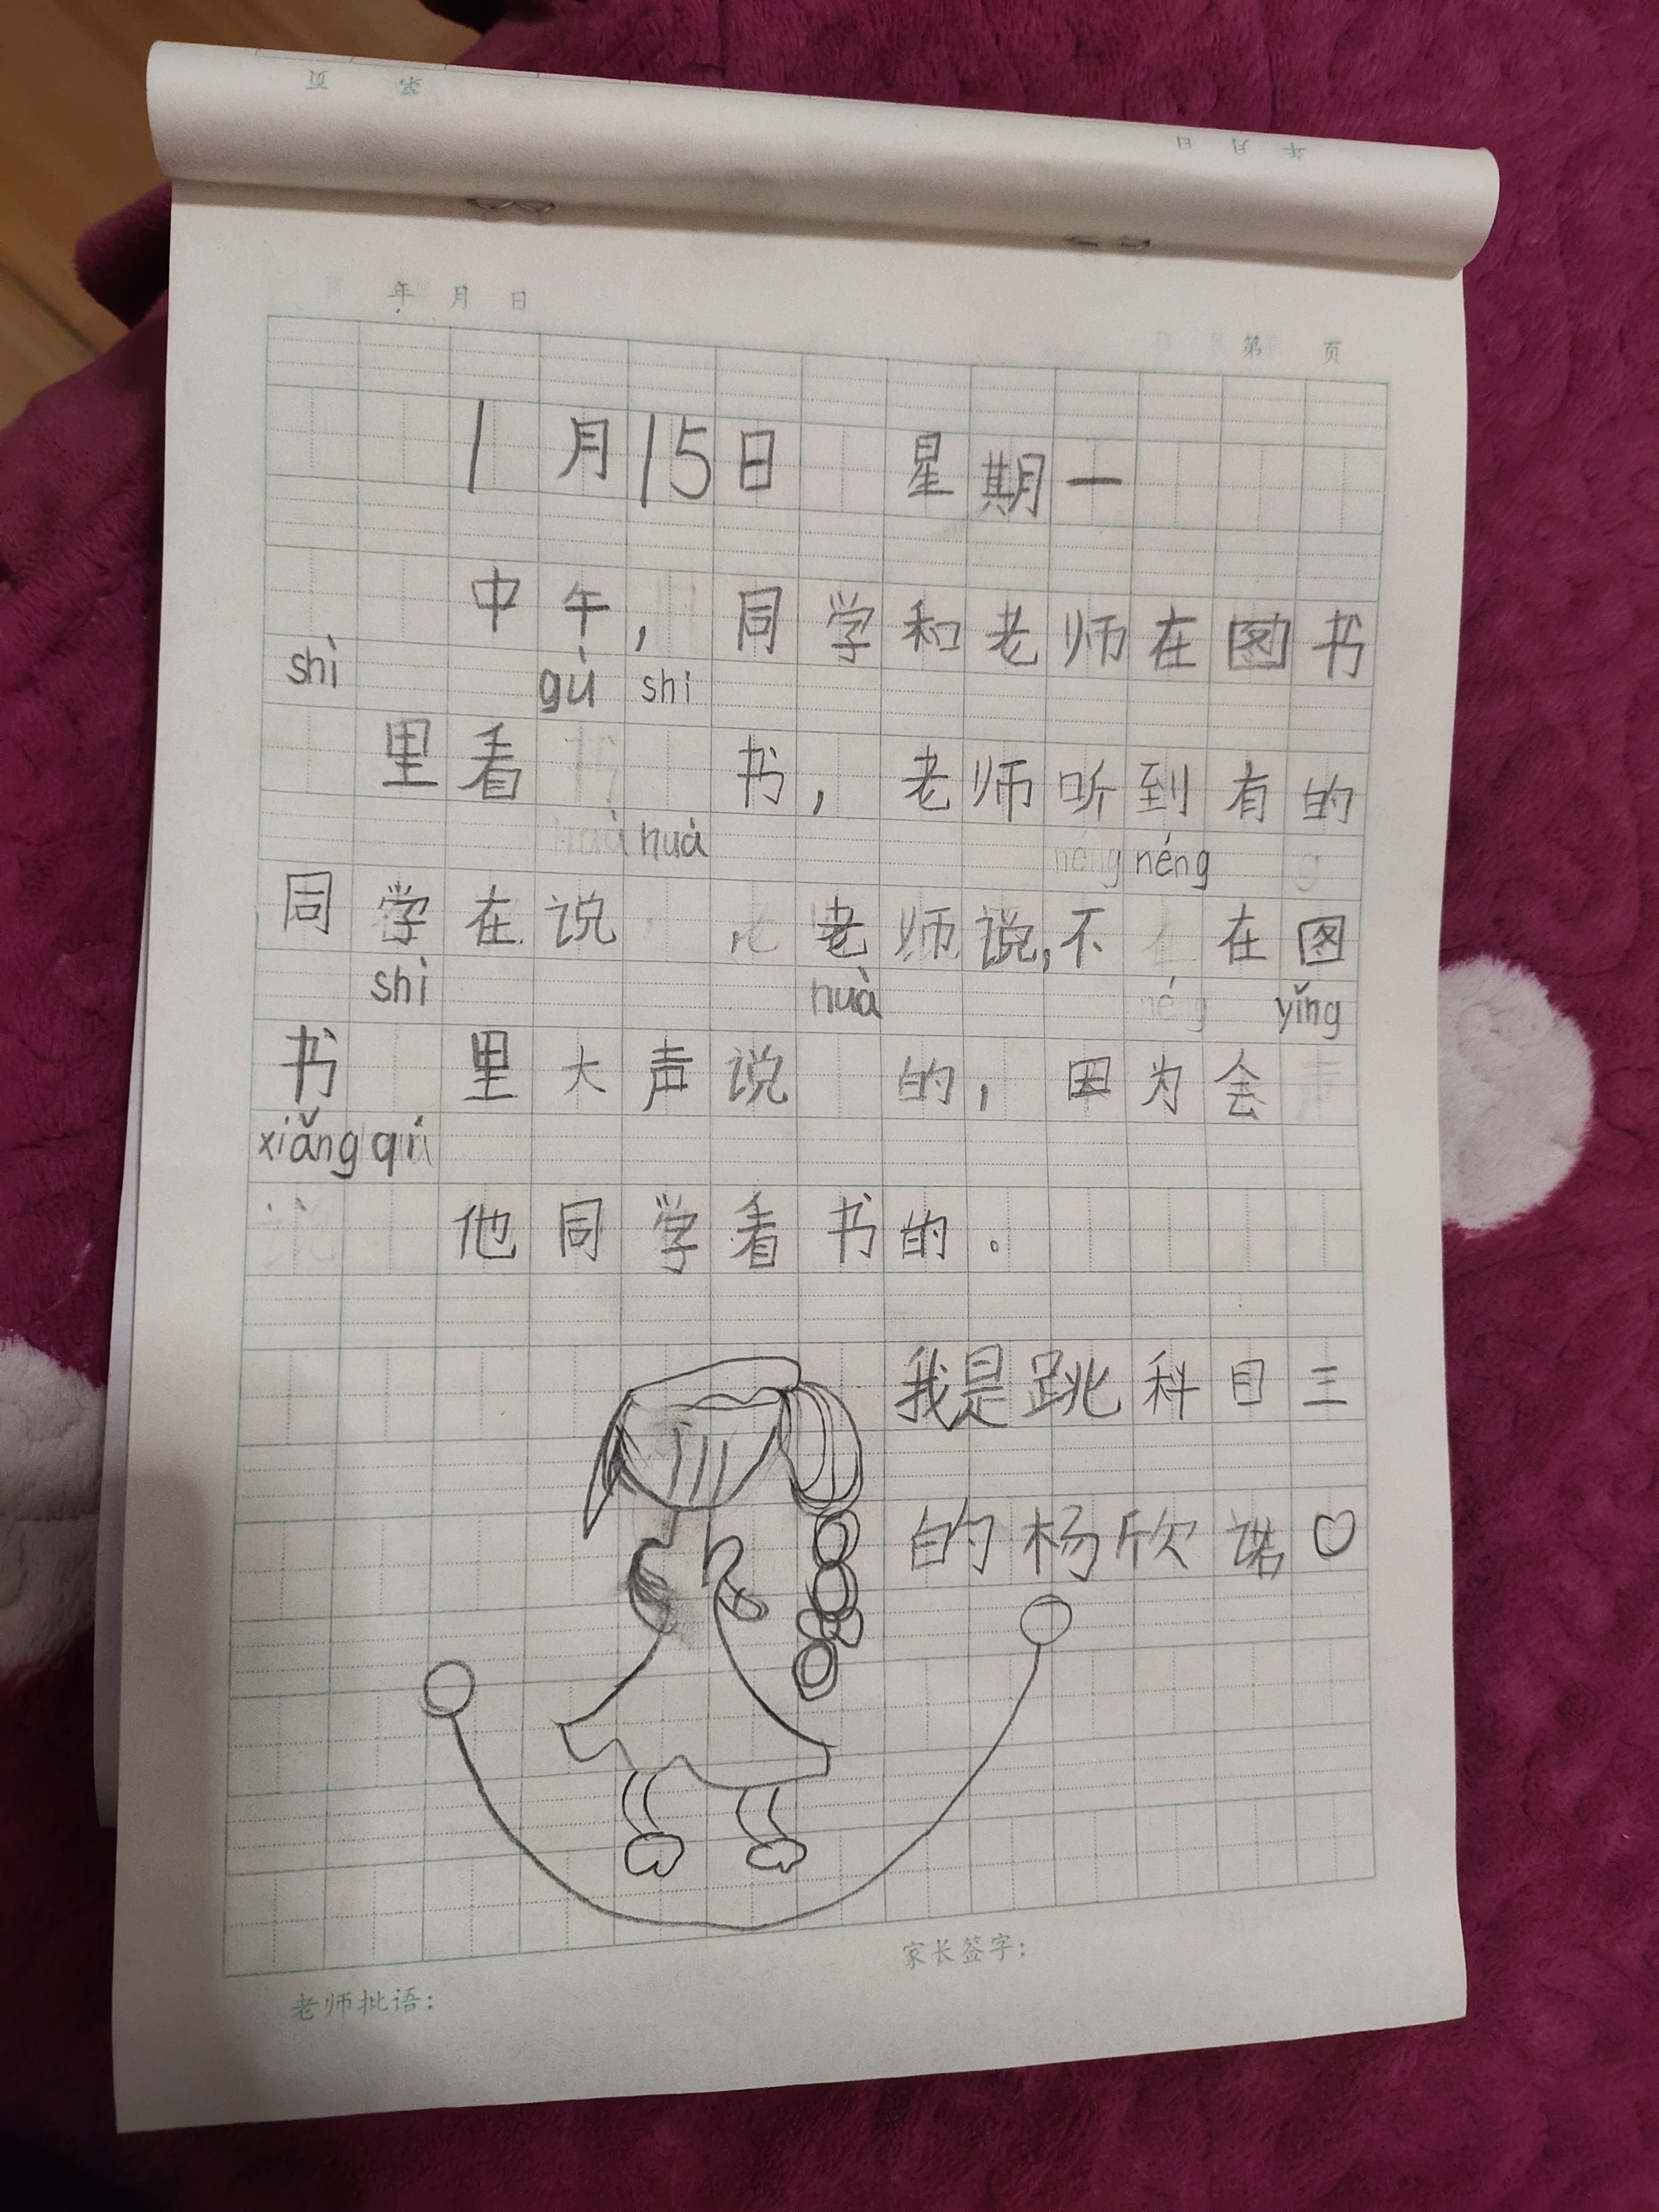 年 月 日
第 页
1月15日 星期一
中午，同学和老师在图书
shì gù shi
里看 书，老师听到有的
huà néng
同学在说 老师说，不 在图
shì huà yǐng
书 里大声说 的，因为会
xiǎng qí
他同学看书的。
我是跳科目三
的杨欣诺♡
家长签字：
老师批语：